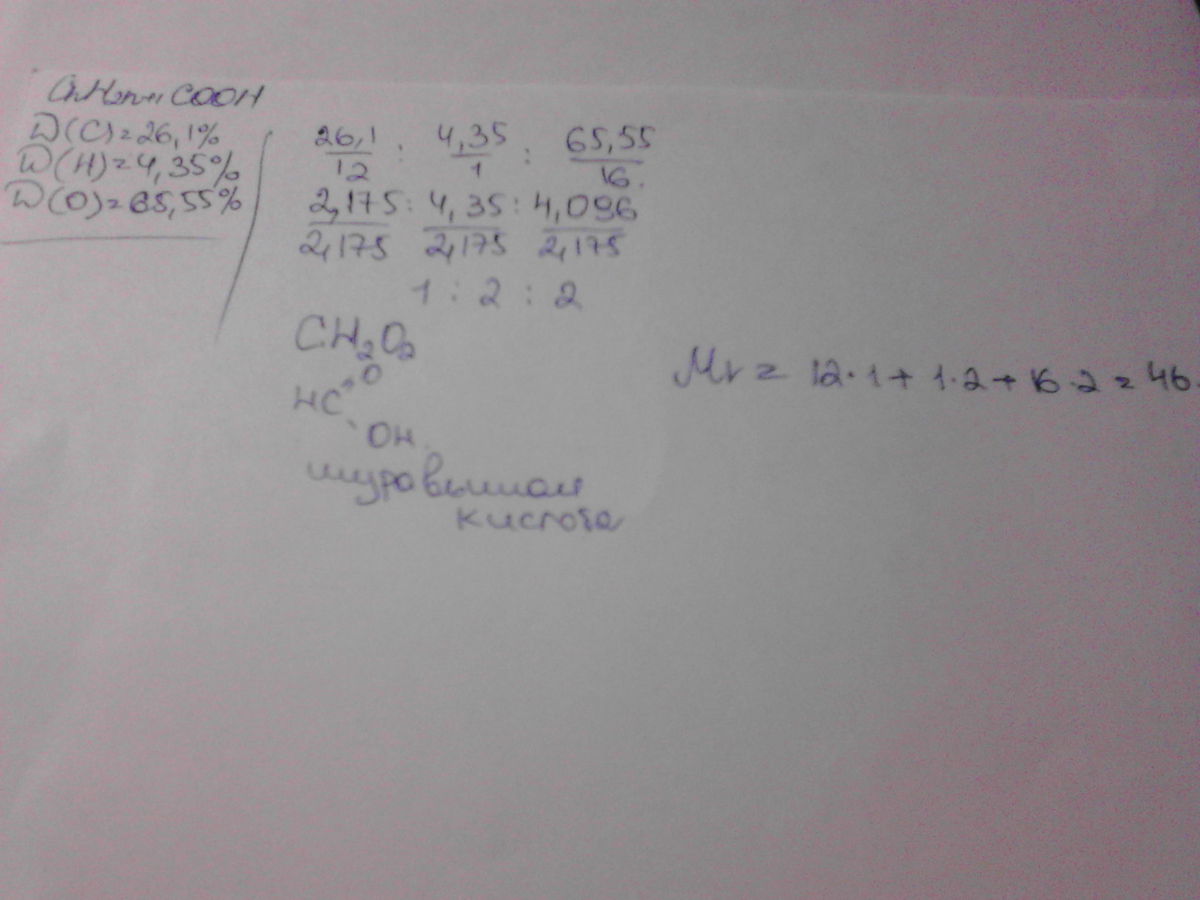 CnH2n+1 COOH
W(C)=26,1%
W(H)=4,35%
W(O)=65,55%
26,1/12 : 4,35/1 : 65,55/16.
2,175/2,175 : 4,35/2,175 : 4,096/2,175
1 : 2 : 2
CH2O2
O
HC
OH
муравьиная
кислота
Mr = 12·1 + 1·2 + 16·2 = 46.